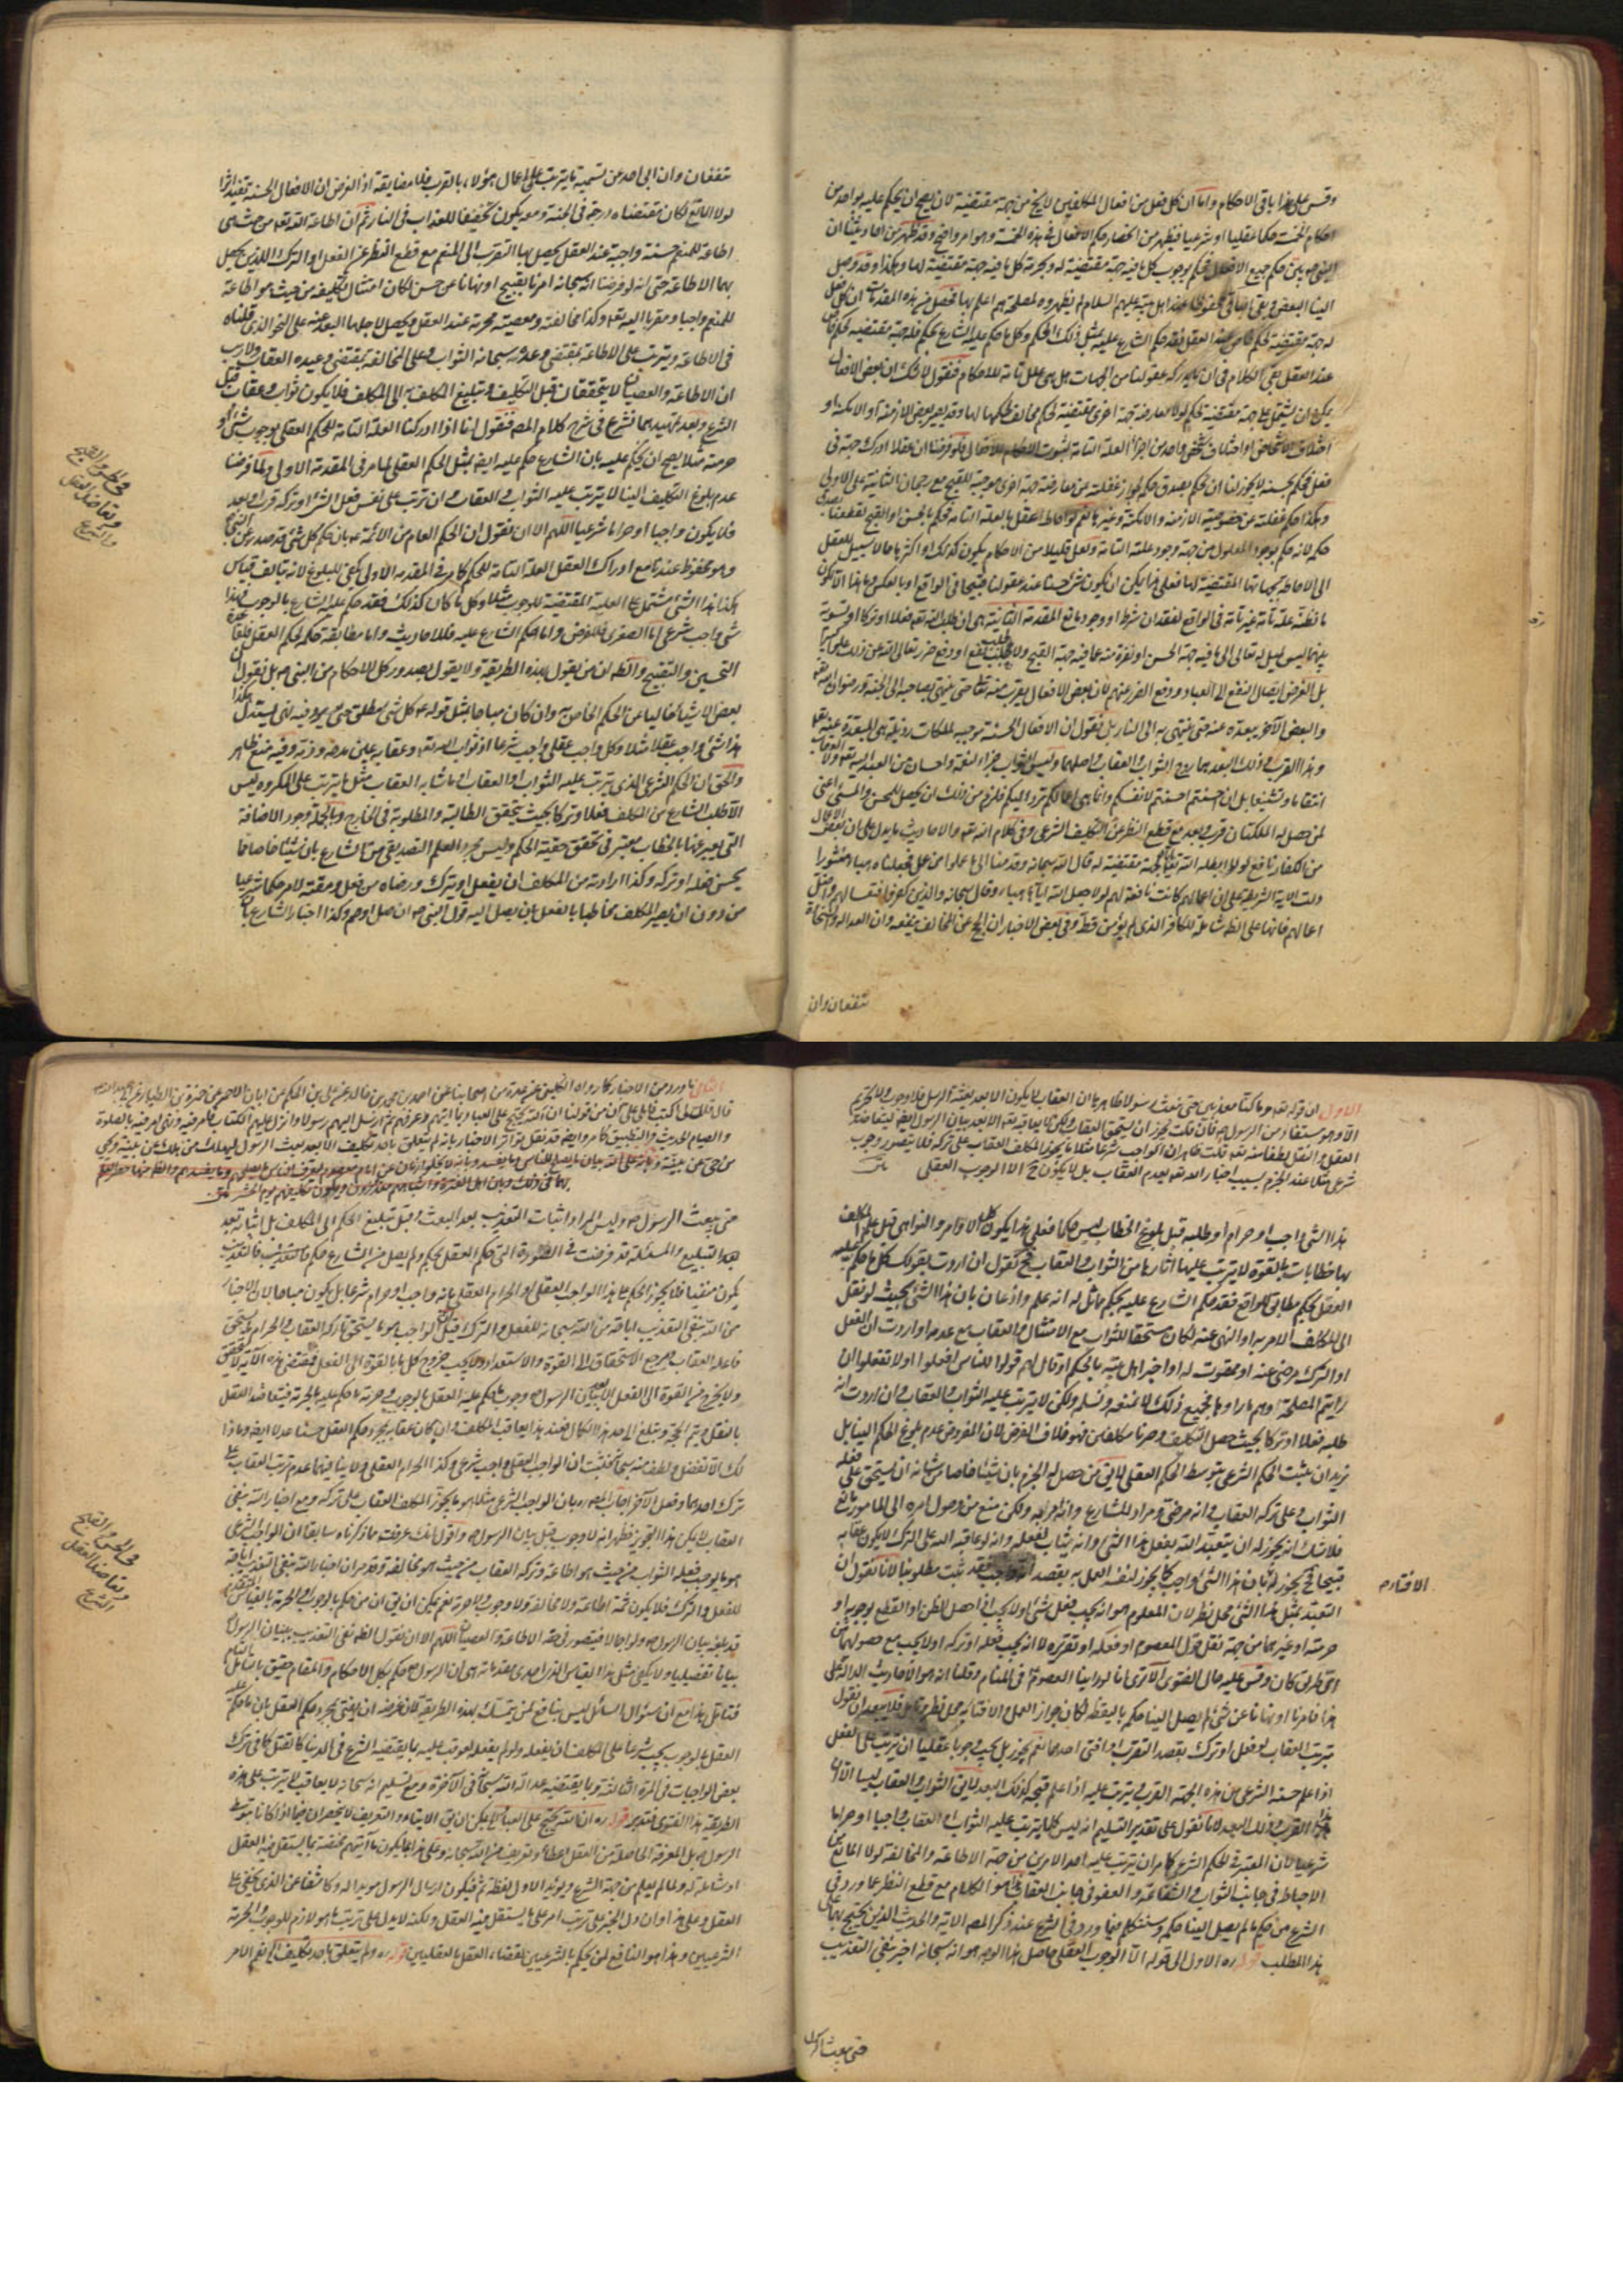 وقس على هذا باقى الاحكام واما ان كل فعل من افعال المكلفين لا يخ من جهة مقتضية لان يصح ان يحكم عليه بواحد من
احكام الخمسة حكما عقليا او شرعيا فيظهر من انحصار حكم الافعال فى هذه الخمسة وهو امر واضح وقد ظهر من احاديثنا ان
النبى ص بين حكم جميع الافعال فحكم بوجوب كل ما فيه جهة مقتضية له وبحرمة كل ما فيه جهة مقتضية لها وهكذا وقد وصل
الينا البعض وبقى الباقى محفوظا عند اهل بيته عليهم السلام لم يظهروه لمصلحة هم اعلم بها فحصل من هذه المقدمات ان كل فعل
له جهة مقتضية لحكم خاص عند العقل فقد حكم الشارع عليه بمثل ذلك الحكم وكل ما حكم عليه الشارع بحكم فله جهة مقتضية لحكم خاص
عند العقل بقى الكلام فى ان ما يدركه عقولنا من الجهات هل هى علل تامة للاحكام فنقول لا شك ان بعض الافعال
يمكن ان يشتمل على جهة مقتضية لحكم لولا معارضة جهة اخرى مقتضية لحكم مخالف لحكمها لها وقد يصير بعض الازمنة او الامكنة او
اختلاف الاشخاص او اختلاف شخص واحد من اجزاء العلة التامة لثبوت فلو فرضنا ان عقلا ادرك جهة فى
فعل فحكم بحسنه لا يجوز لنا ان نحكم بصدق حكمه لجواز غفلته عن معارضة جهة اخرى موجبة للقبح مع رجحان الثانية على الاولى
وهكذا حكم غفلته عن خصوصية الازمنة والامكنة وغيرها نعم لو احاط العقل بالعلة التامة فحكم بالحسن او القبح نقطع بصدق
حكمه لانه حكم بوجود المعلول من جهة وجود علته التامة ولعل قليلا من الاحكام يكون كذلك او اكثرها مما لا سبيل للعقل
الى الاحاطة بجهاتها المقتضية لها فعلى هذا يمكن ان يكون شئ حسنا عند عقولنا قبيحا فى الواقع او بالعكس وما هذا الا لكون
ما نظنه علة تامة غير تامة فى الواقع لفقدان شرط او وجود مانع المقدمة الثانية هى ان طلب الله تعه فعلا او تركا او تسوية
بينهما ليس لميل له تعالى الى ما فيه جهة الحسن او نفرة منه عما فيه جهة القبح ولا لجلب نفع او دفع ضرر تعالى الله عن ذلك علوا كبيرا
بل الغرض ايصال النفع الى العباد ودفع الضرر عنهم لان بعض الافعال يقرب منه تعالى حتى ينتهى بصاحبه الى الجنة ورضوان الله تعه
والبعض الآخر يبعده عنه حتى ينتهى به الى النار بل نقول ان الافعال الحسنة توجب للملكات
وهذا القرب وذلك البعد هما روح الثواب والعقاب واصلهما وليس الثواب جزاء لنفعه واحسان من العبد اليه تعه ولا العقاب
انتقاما وتشفيا بل ان احسنتم احسنتم لانفسكم وانما هى اعمالكم ترد اليكم فلزم من ذلك ان يحصل للمحسن والمسئ اعنى
لمن حصل له الملكتان قرب وبعد مع قطع النظر عن التكليف الشرعى وفى كلام الله تعه والاحاديث ما يدل على ان بعض الاعمال
من الكفار نافع لولا ابطله الله تعالى لجهة مقتضية له قال الله سبحانه وقدمنا الى ما عملوا من عمل فجعلناه هباء منثورا
دلت الاية الشريفة على ان اعمالهم كانت نافعة لهم لولا جعل الله اياها هباء وقال سبحانه والذين كفروا فتعسا لهم واضل
اعمالهم فانها على الظ شاملة للكافر الذى لم يؤمن قط وفى بعض الاخبار ان الحج عن المخالف ينفعه وان العدالة والسخاوة
تنفعان وان
تنفعان وان ابى احد عن تسمية ما يترتب على اعمال هؤلاء بالقرب فلا مضايقة اذ الغرض ان الافعال الحسنة تفيد اثرا
لولا المانع لكان مقتضاه درجة فى الجنة ومعه يكون تخفيفا للعذاب فى النار ثم ان اطاعة الله تعه من حيث هى
اطاعة للمنعم حسنة واجبة عند العقل يحصل بها التقرب الى المنعم مع قطع النظر عن الفعل او الترك اللذين يحصل
بهما الاطاعة حتى انه لو فرضنا انه سبحانه امرنا بقبيح او نهانا عن حسن لكان امتثال تكليفه من حيث هو اطاعة
للمنعم واجبا ومقربا اليه تعه وكذا مخالفته ومعصيته محرمة عند العقل ويحصل لاجلها البعد عنه على النحو الذى قلناه
فى الاطاعة ويترتب على الاطاعة بمقتضى وعده سبحانه الثواب وعلى المخالفة بمقتضى وعيده العقاب ولا ريب
ان الاطاعة والعصيان لا يتحققان قبل التكليف وتبليغ المكلف به الى المكلف فلا يكون ثواب وعقاب قبل
الشرع وبعد تمهيدهما نشرع فى شرح كلام المصه فنقول انا اذا ادركنا العلة التامة للحكم العقلى بوجوب شئ او
حرمته مثلا يصح ان يحكم عليه بان الشارع حكم عليه ايضا بمثل الحكم العقلى لما مر فى المقدمة الاولى ولما فرضنا
عدم بلوغ التكليف الينا لا يترتب عليه الثواب والعقاب وان ترتب على نفس فعل الشئ او تركه قرب وبعد
فلا يكون واجبا او حراما شرعيا اللهم الا ان نقول ان الحكم العام من الائمة ع بان حكم كل شئ قد صدر عن النبى ص
وهو محفوظ عندنا مع ادراك العقل العلة التامة للحكم كما مر فى المقدمه الاولى يكفى للبلوغ لانه يتألف قياس
هكذا هذا الشئ مشتمل على العلية المقتضية للوجوب مثلا وكل ما كان كذلك فقد حكم عليه الشارع بالوجوب فهذا
شئ واجب شرعى اما الصغرى فللفرض واما حكم الشارع عليه فللاحاديث واما مطابقة حكمه لحكم العقل فلقاعدة
التحسين والتقبيح والظه ان من يقول بهذه الطريقة ولا يقول بصدور كل الاحكام من النبى ص بل نقول ان
بعض الاشياء خاليا عن الحكم الخاص به وان كان مباحا بمثل قوله ع كل شئ مطلق حتى يرد فيه نهى يستدل هكذا
هذا شئ واجب عقلا مثلا وكل واجب عقلى واجب شرعا اذ ثواب الله تعه وعقابه عين مدحه وذمه وفيه منع ظاهر
والحق ان الحكم الشرعى الذى يترتب عليه الثواب او العقاب او ما شابه العقاب مثل ما يترتب على المكروه وليس
الا طلب الشارع من المكلف فعلا او تركا بحيث يتحقق الطالبية والمطلوبية فى الخارج وبالجملة وجود الاضافة
التى يعبر عنها بالخطاب معتبر فى تحقق حقيقة الحكم وليس مجرد العلم التصديقى من الشارع بان شيئا خاصا مما
يحسن فعله او تركه وكذا ارادته من المكلف ان يفعل او يترك ورضاه من فعل ومقته لامر حكما شرعيا
من دون ان يصير المكلف مخاطبا بالفعل بان يصل اليه قول النبى ص ان صل او صم وكذا اخبار الشارع بان
فى الحسن والقبح
وتعاضد العقل
والشرع
الاول ان قوله تعه وما كنا معذبين حتى نبعث رسولا ظاهر بان العقاب لا يكون الا بعد بعثة الرسل فلا وجوب ولا تحريم
الا وهو مستفاد من الرسول ص فان قلت يجوز ان يستحق العقاب ولكن لا يعاقبه الا بعد بيان الرسول ايضا ليتعاضد
العقل والنقل لطفا منه تعه قلت ظاهر ان الواجب شرعا مثلا ما يجوز المكلف العقاب على تركه فلا يتصور وجوب
شرعى مثلا عند الجزم بسبب اخبار الله تعه بعدم العقاب بل لا يكون ح الا الوجوب العقلى
هذا الشئ واجب او حرام او طلبه قبل بلوغ الخطاب ليس حكما فعلى هذا يكون كلها الاوامر والنواهى قبل علم المكلف
بها خطابات بالقوة لا يترتب عليها اثارها من الثواب والعقاب فح نقول ان اردت بقولك كل ما حكم عليه
العقل بحكم مطابق للواقع فقد حكم الشارع عليه بحكم مماثل له انه علم واذعان بان هذا الشئ بحيث لو نقل
الى المكلف الامر به او النهى عنه لكان مستحقا للثواب مع الامتثال والعقاب مع عدمه او اردت ان الفعل
او الترك مرضى عنه او ممقوت له او اخبر اهل بيته بالحكم او قال لهم قولوا للناس افعلوا او لا تفعلوا ان
رايتم المصلحة وهم ما راوها فجميع ذلك لا نمنعه ونسلم ولكن لا يترتب عليه الثواب والعقاب وان اردت انه
طلبه فعلا او تركا بحيث حصل التكليف وصرنا مكلفين فهو خلاف الفرض لان المفروض عدم بلوغ الحكم الينا بل
نريد ان نثبت الحكم الشرعى بتوسط الحكم العقلى لا يق من حصل له الجزم بان شيئا خاصا من شانه ان يستحق على فعله
الثواب وعلى تركه العقاب وانه مرضى ومراد للشارع وانه امر به ولكن منع من وصول امره الى المامور مانع
فلا شك انه يجوز له ان يتعبد الله بفعل هذا الشئ وانه يثاب لفعله وانه لو عاقبه الله على الترك لا يكون عقابه
قبيحا فح يجوز له بان هذا الشئ واجب كما يجوز لنفسه العمل به بقصد فقد ثبت مطلوبنا لانا نقول ان
التعبد بمثل هذا الشئ محل نظر لان المعلوم هو انه يجب فعل شئ او لا يجب اذا حصل الظن او القطع بوجوبه او
حرمته او غيرهما من جهة نقل قول المعصوم او فعله او تقريره لا انه يجب فعله او تركه او لا يجب مع حصولهما من
اى طريق كان وقس عليه حال الفتوى الا ترى انا لو راينا المعصوم فى المنام وقلنا انه هو لاحاديث الدالة على
هذا فامرنا او نهانا عن شئ لم يصل الينا حكمه باليقظة لكان جواز العمل والافتاء به محل نظر وتامل
الافتاء به
يترتب العقاب لو فعل او ترك بقصد التقرب او افتى احدهما نعم يجوز بل يجب وجوبا عقليا ان يترتب على الفعل
اذا علم حسنه الشرعى من هذه الجهة القرب يترتب عليه اذا علم قبحه كذلك البعد لا يق الثواب والعقاب ليسا الا
هذا القرب وذلك البعد لانا نقول على تقدير التسليم انه ليس كلما يترتب عليه الثواب او العقاب واجبا او حراما
شرعيا لان المعتبر فى الحكم الشرعى كما مر ان يترتب عليه احد الامرين من جهة الاطاعة والمخالفة لولا المانع من
الاحباط فى جانب الثواب والشفاعة والعفو فى جانب العقاب هذا هو الكلام مع قطع النظر عما ورد فى
الشرع من حكم ما لم يصل الينا حكمه وسنتكلم فيما ورد فى الشرع عند ذكر المصه الاية والحديث الذين يحتج بهما على
هذا المطلب قوله ره الاول الى قوله الا الوجوب العقلى حاصل هذا الوجه هو انه سبحانه اخبر بنفى التعذيب
حتى يبعث الرسول
الثانى ما ورد من الاخبار كما رواه الكلينى عن عدة من اصحابنا عن احمد بن محمد بن خالد عن على بن الحكم عن ابان الاحمر عن حمزة بن الطيار عن ابى عبد الله ع
قال قال لى اكتب فاملى على ان من قولنا ان الله يحتج على العباد بما اتيهم وعرفهم ثم ارسل اليهم رسولا وانزل عليهم الكتاب فامر فيه ونهى امر فيه بالصلوة
والصيام الحديث والتطبيق كما مر وايضا قد نقل تواتر الاخبار بانه لم يتعلق باحد تكليف الا بعد بعث الرسول ليهلك من هلك عن بينة ويحيى
من حى عن بينة وبانه على الله بيان ما يصلح للناس وما يفسد وبانه لا يخلو زمان عن امام معصوم ليعرف الناس ما يصلحهم وما يفسدهم
حتى يبعث الرسول ص وليس المراد اثبات التعذيب بعد البعث وقبل تبليغ الحكم الى المكلف بل اثباته بعد
هذا التبليغ والمسئلة قد فرضت فى الصورة التى حكم العقل بحكم ولم يصل من الشارع حكم فالتعذيب
يكون منفيا فلا يجوز الحكم على هذا الواجب العقلى او الحرام العقلى بانه واجب او حرام شرعا بل يكون مباحا لان الاخبار
من الله بنفى التعذيب اباحة من الله سبحانه للفعل والترك فان قيل الواجب هو ما يستحق تاركه العقاب والحرام ما يستحق
فاعله العقاب ومرجع الاستحقاق الى القوة والاستعداد ولا يجب خروج كل ما بالقوة الى الفعل فمقتضى هذه الآية
ولا يخرج من القوة الى الفعل الا ببيان الرسول وجوب ما حكم عليه العقل بالوجوب وحرمة ما حكم عليه بالحرمة فيتعاضد العقل
بالنقل ويتم الحجة ويبلغ الى حد هذا الكمال فعند هذا يعاقب المكلف وان كان عقابه بمجرد حكم العقل حسنا عدلا ايضا وما ذا
لك الا تفضل ولطف منه سبحانه فثبت ان الواجب العقلى واجب شرعى وكذا الحرام العقلى ولا ينافيهما عدم ترتب العقاب على
ترك احدهما وفعل الآخر اجاب المصه ره بان الواجب الشرعى مثلا هو ما يجوز المكلف العقاب على تركه ومع اخبار الله بنفى
العقاب لا يمكن هذا التجويز فظهر انه لا وجوب قبل بيان الرسول ص واقول انك عرفت مما ذكرناه سابقا ان الواجب الشرعى
هو ما يوجب فعله الثواب من حيث هو اطاعة وتركه العقاب من حيث هو مخالفة وقد مر ان اخبار الله بنفى التعذيب اباحة
للفعل والترك فلا يكون ثمة اطاعة ولا مخالفة ولا وجوب ولا حرمة نعم يمكن ان يق ان من حكم بالوجوب او الحرمة بالقياس
قد بلغه بيان الرسول ص ولو اجمالا فيتصور فى حقه الاطاعة والعصيان اللهم الا ان نقول الظ نفى التعذيب ببيان الرسول
بيانا تفصيليا ولا يكفى مثل هذا القياس الذى احدى مقدماته هى ان الرسول ص حكم بكل الاحكام والمقام حقيق بالتامل
فتامل هذا مع ان سؤال السائل ليس بنافع لمن يتمسك بهذه الطريقة لان غرضه ان يفتى بمجرد حكم العقل بان ما حكم عليه
العقل بالوجوب يجب شرعا على المكلف ان يفعله ولو لم يفعله لعوقب عليه بما يقتضيه الشرع فى الدنيا كالقتل كما فى ترك
بعض الواجبات فى المرة الثالثة وبما يقتضيه عدالة الله سبحانه فى الآخرة ومع تسليم انه سبحانه لا يعاقب لا يترتب على هذه
الطريقة هذا الفتوى فتدبر قوله ره ان الله يحتج على العباد لا يمكن ان يق الايتاء والتعريف لا ينحصران فيما اذا كانا بتوسط
الرسول ص بل المعرفة الحاصلة من العقل اعطاء وتعريف من الله سبحانه وعلى هذا اما يكون ما اتيهم مختصة بما يستقل فيه العقل
او شاملة له ولما لم يعلم من جهة الشرع ويؤيد الاول لفظة ثم فيكون ارسال الرسول مؤيدا له وكاشفا عن الذى يخفى على
العقل وعلى هذا وان دل الخبر على ترتب امر على ما يستقل فيه العقل ولكنه لا يدل على ترتب ما هو لازم للوجوب والحرمة
الشرعيين وهذا هو النافع لمن يحكم بالشرعيين لاقتضاء العقل بالعقليين قوله ره ولم يتعلق باحد تكليف الخ نعم الامر
فى الحسن والقبح
وتعاضد العقل
والشرع